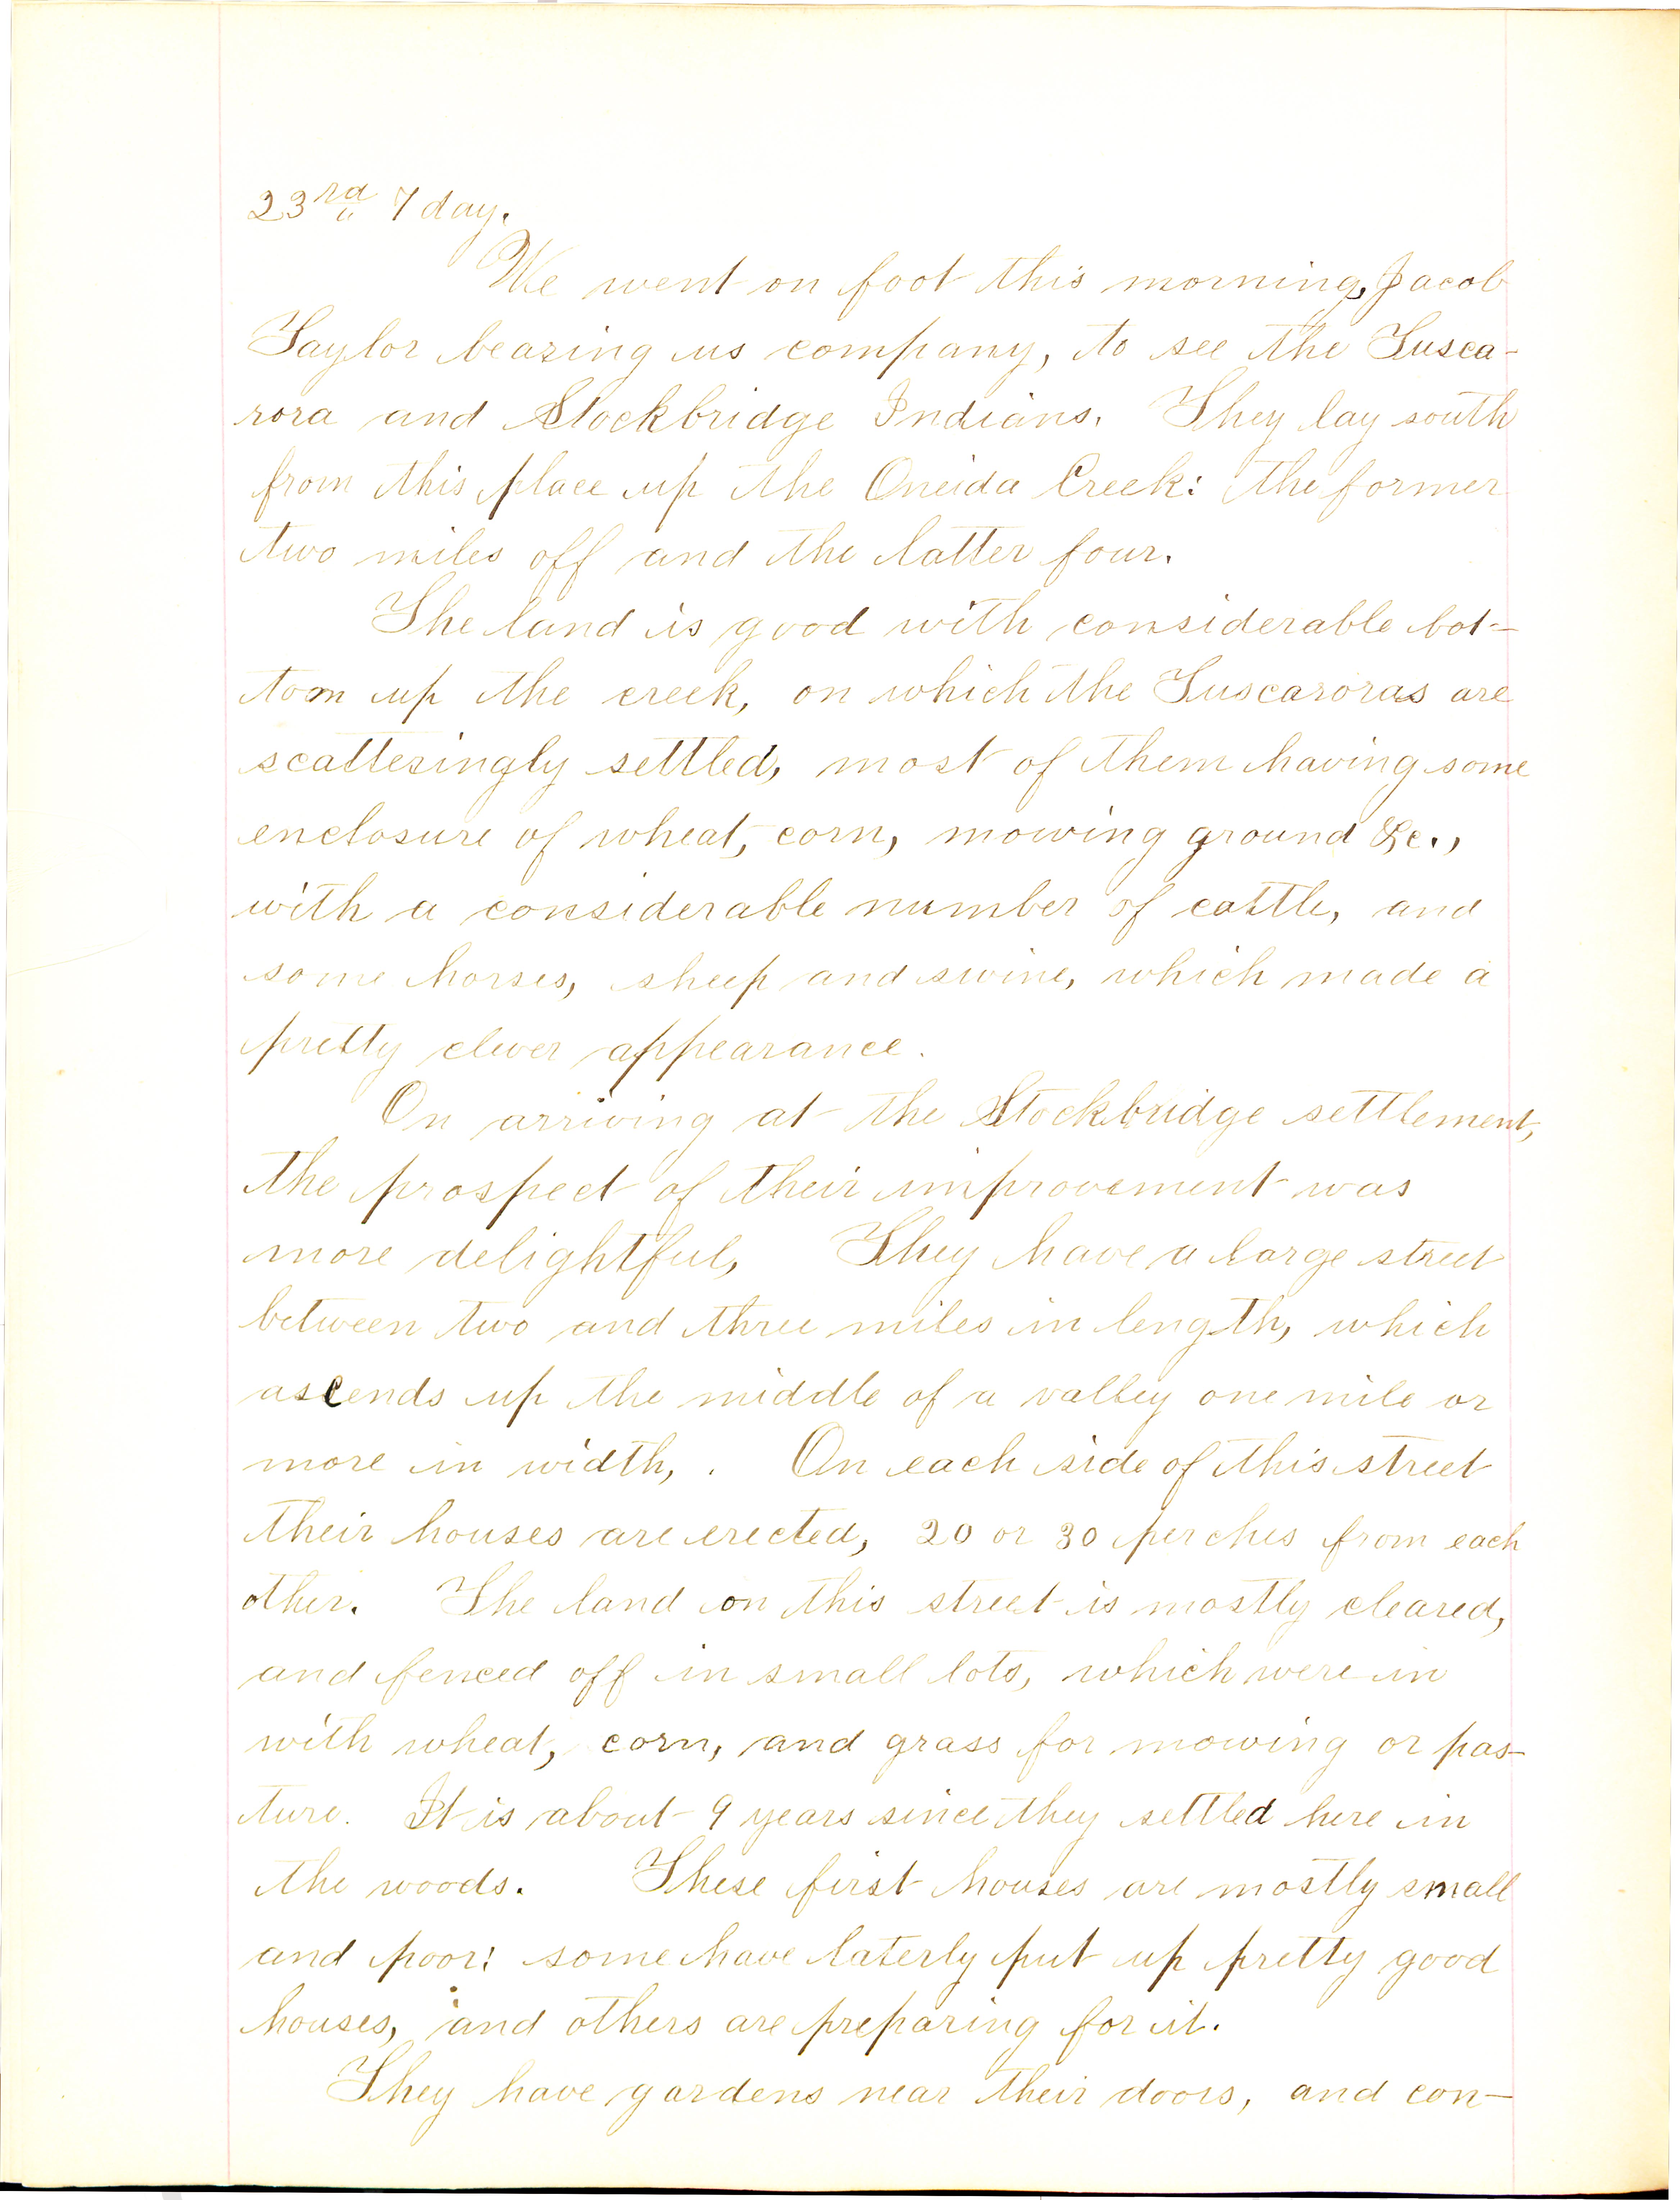 23rd 7 day.
We went on foot this morning, Jacob
Taylor bearing us company, to see the Tusca-
rora and Stockbridge Indians. They lay south
from this place up the Oneida Creek: the former
two miles off and the latter four.
The land is good with considerable bot-
tom up the creek, on which the Tuscaroras are
scatteringly settled, most of them having some
enclosure of wheat, corn, mowing ground &c.,
with a considerable number of cattle, and
some horses, sheep and swine, which made a
pretty clever appearance.
On arriving at the Stockbridge settlement,
the prospect of their improvement was
more delightful, They have a large street
between two and three miles in length, which
ascends up the middle of a valley one mile or
more in width, . On each side of this street
their houses are erected, 20 or 30 perches from each
other. The land on this street is mostly cleared,
and fenced off in small lots, which were in
with wheat, corn, and grass for mowing or pas-
ture. It is about 9 years since they settled here in
the woods. These first houses are mostly small
and poor: some have laterly put up pretty good
houses, and others are preparing for it.
They have gardens near their doors, and con-